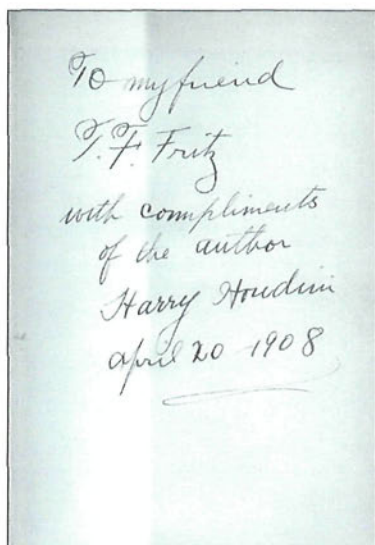 To my friend
T. F. Fritz
with compliments
of the author
Harry Houdini
april 20 1908